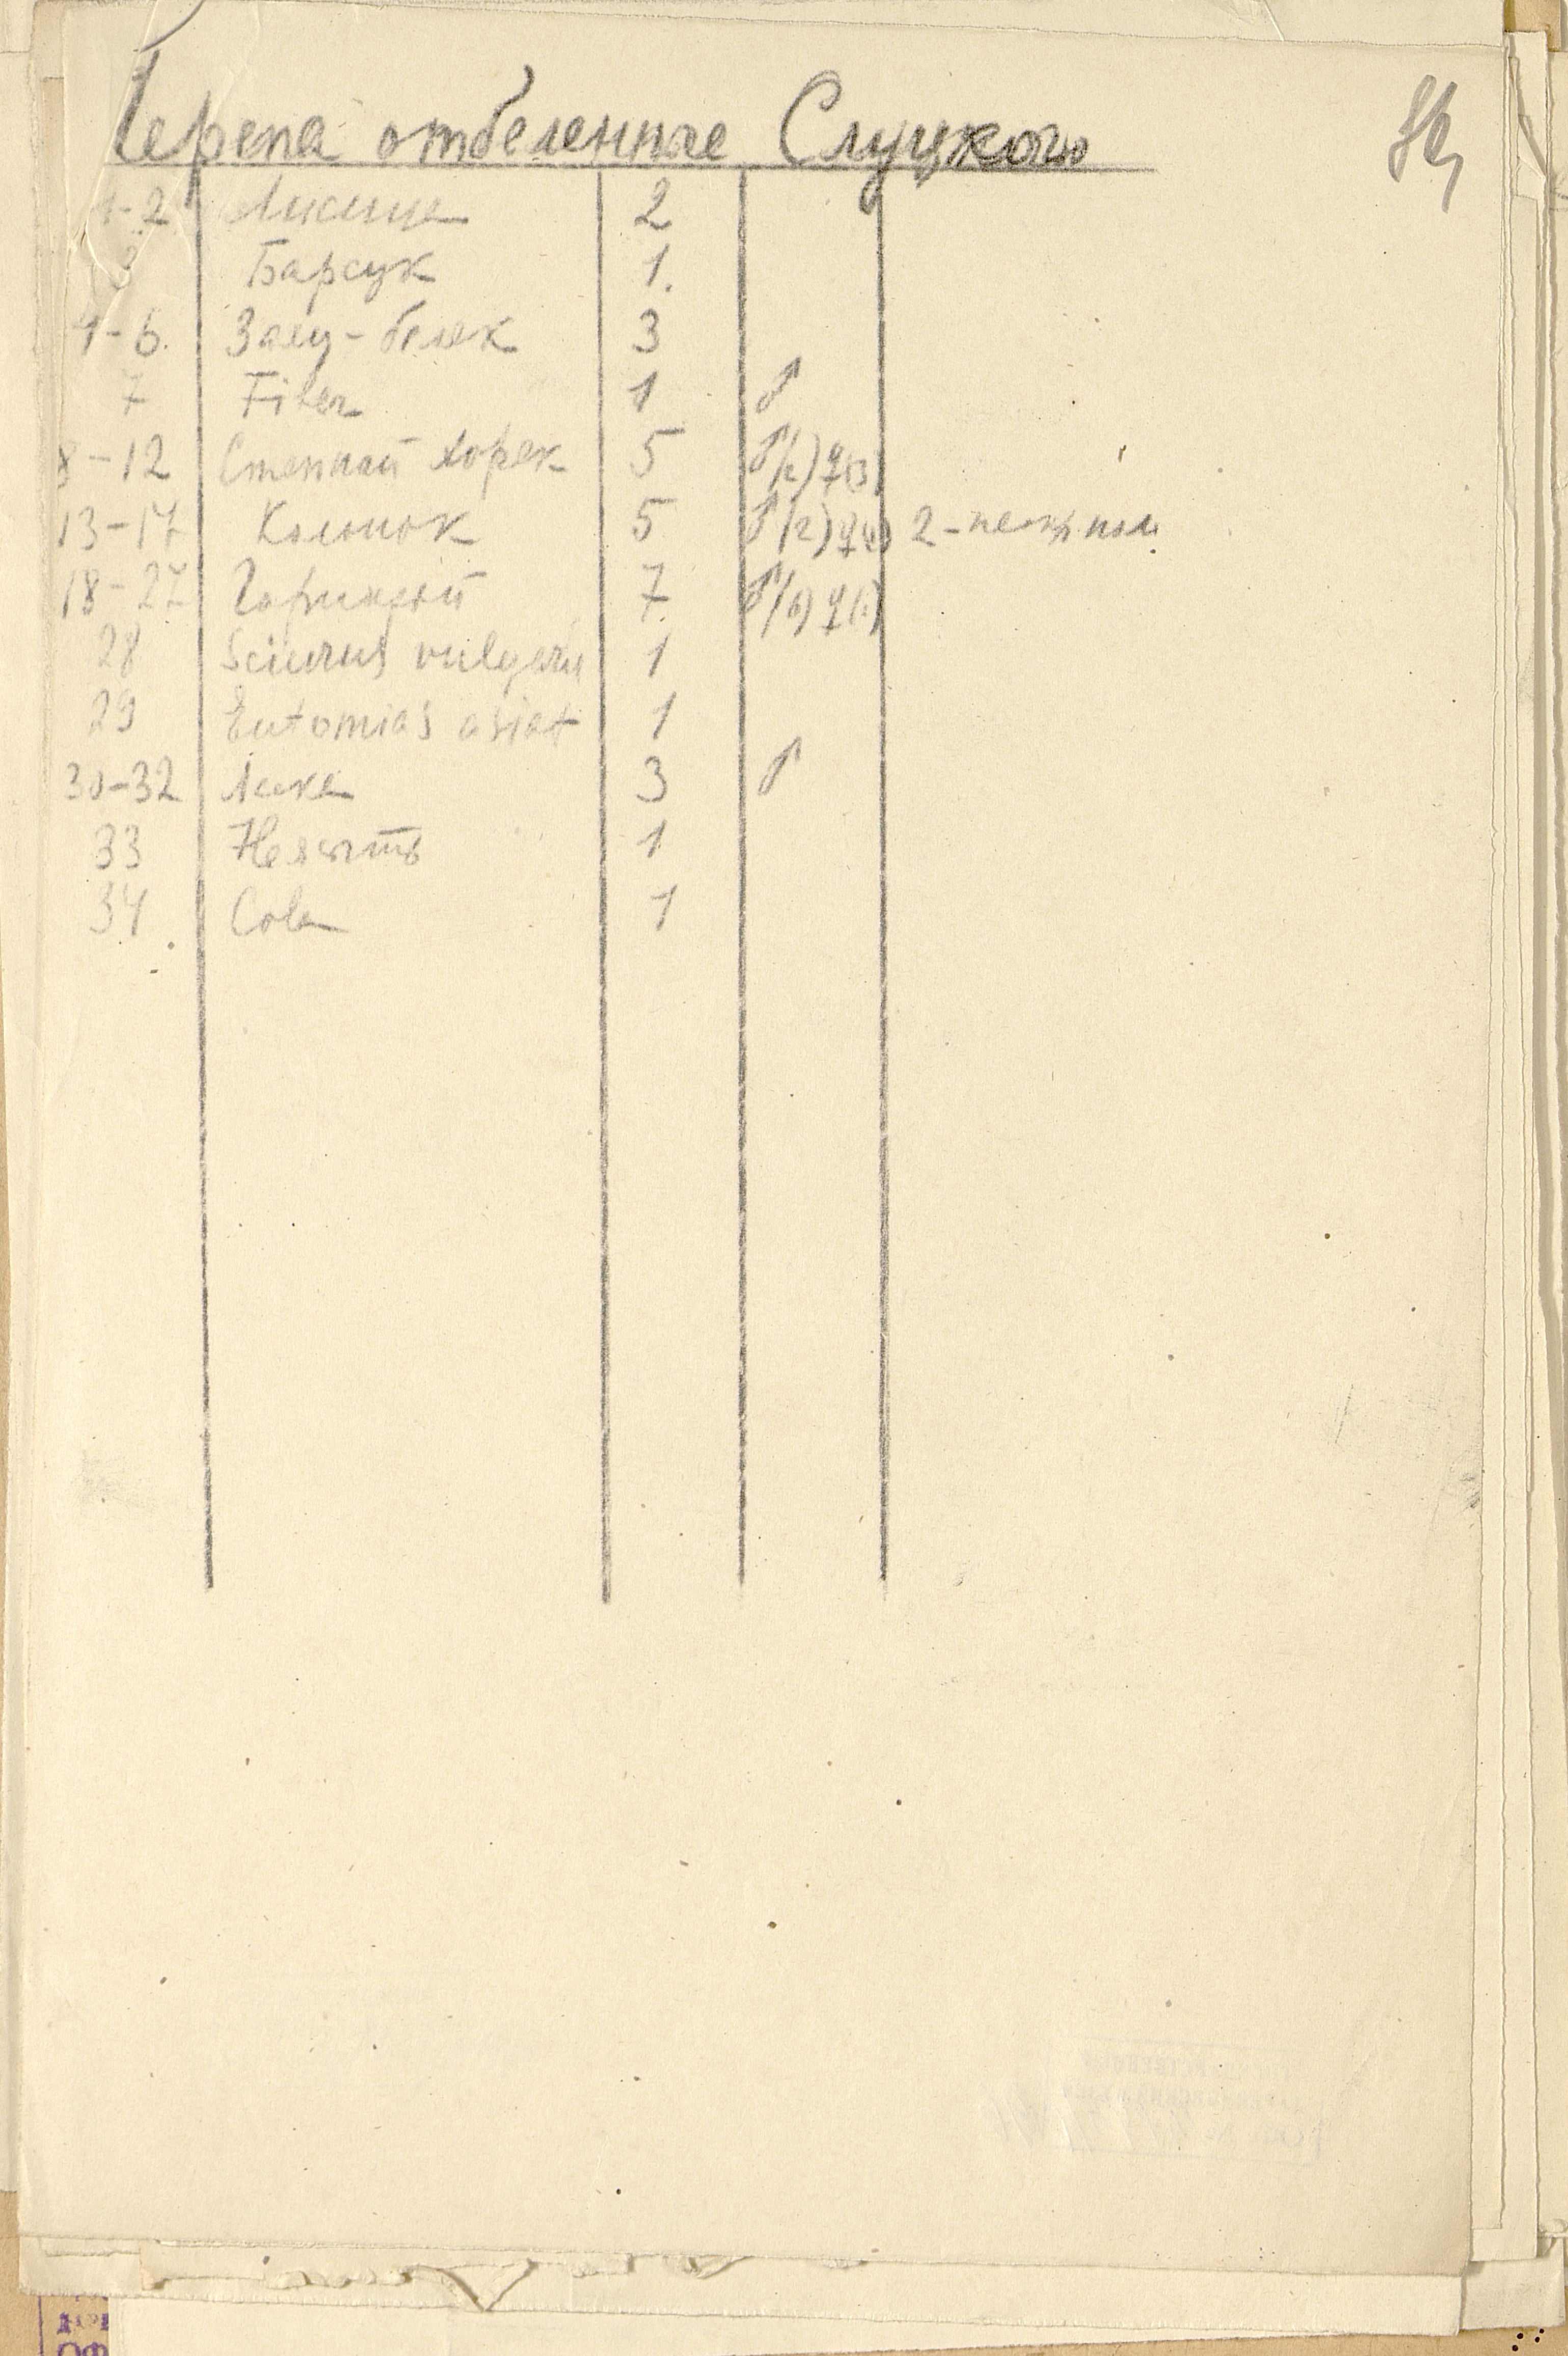 Черепа отбеленные Слуцкого
1-2 Лисица 2
3 Барсук 1.
4-6. Заяц-беляк 3
7 Fiber 1 ♂
8-12 Степной хорек 5 ♂(2) ♀(3)
13-17 Колонок 5 ♂(2) ♀ 2-
18-27 7 ♂ ♀
28 Sciurus vulgaris 1
29 Eutomias asiat 1
30-32 Ласка 3 ♂
33 Неясыть 1
34 1